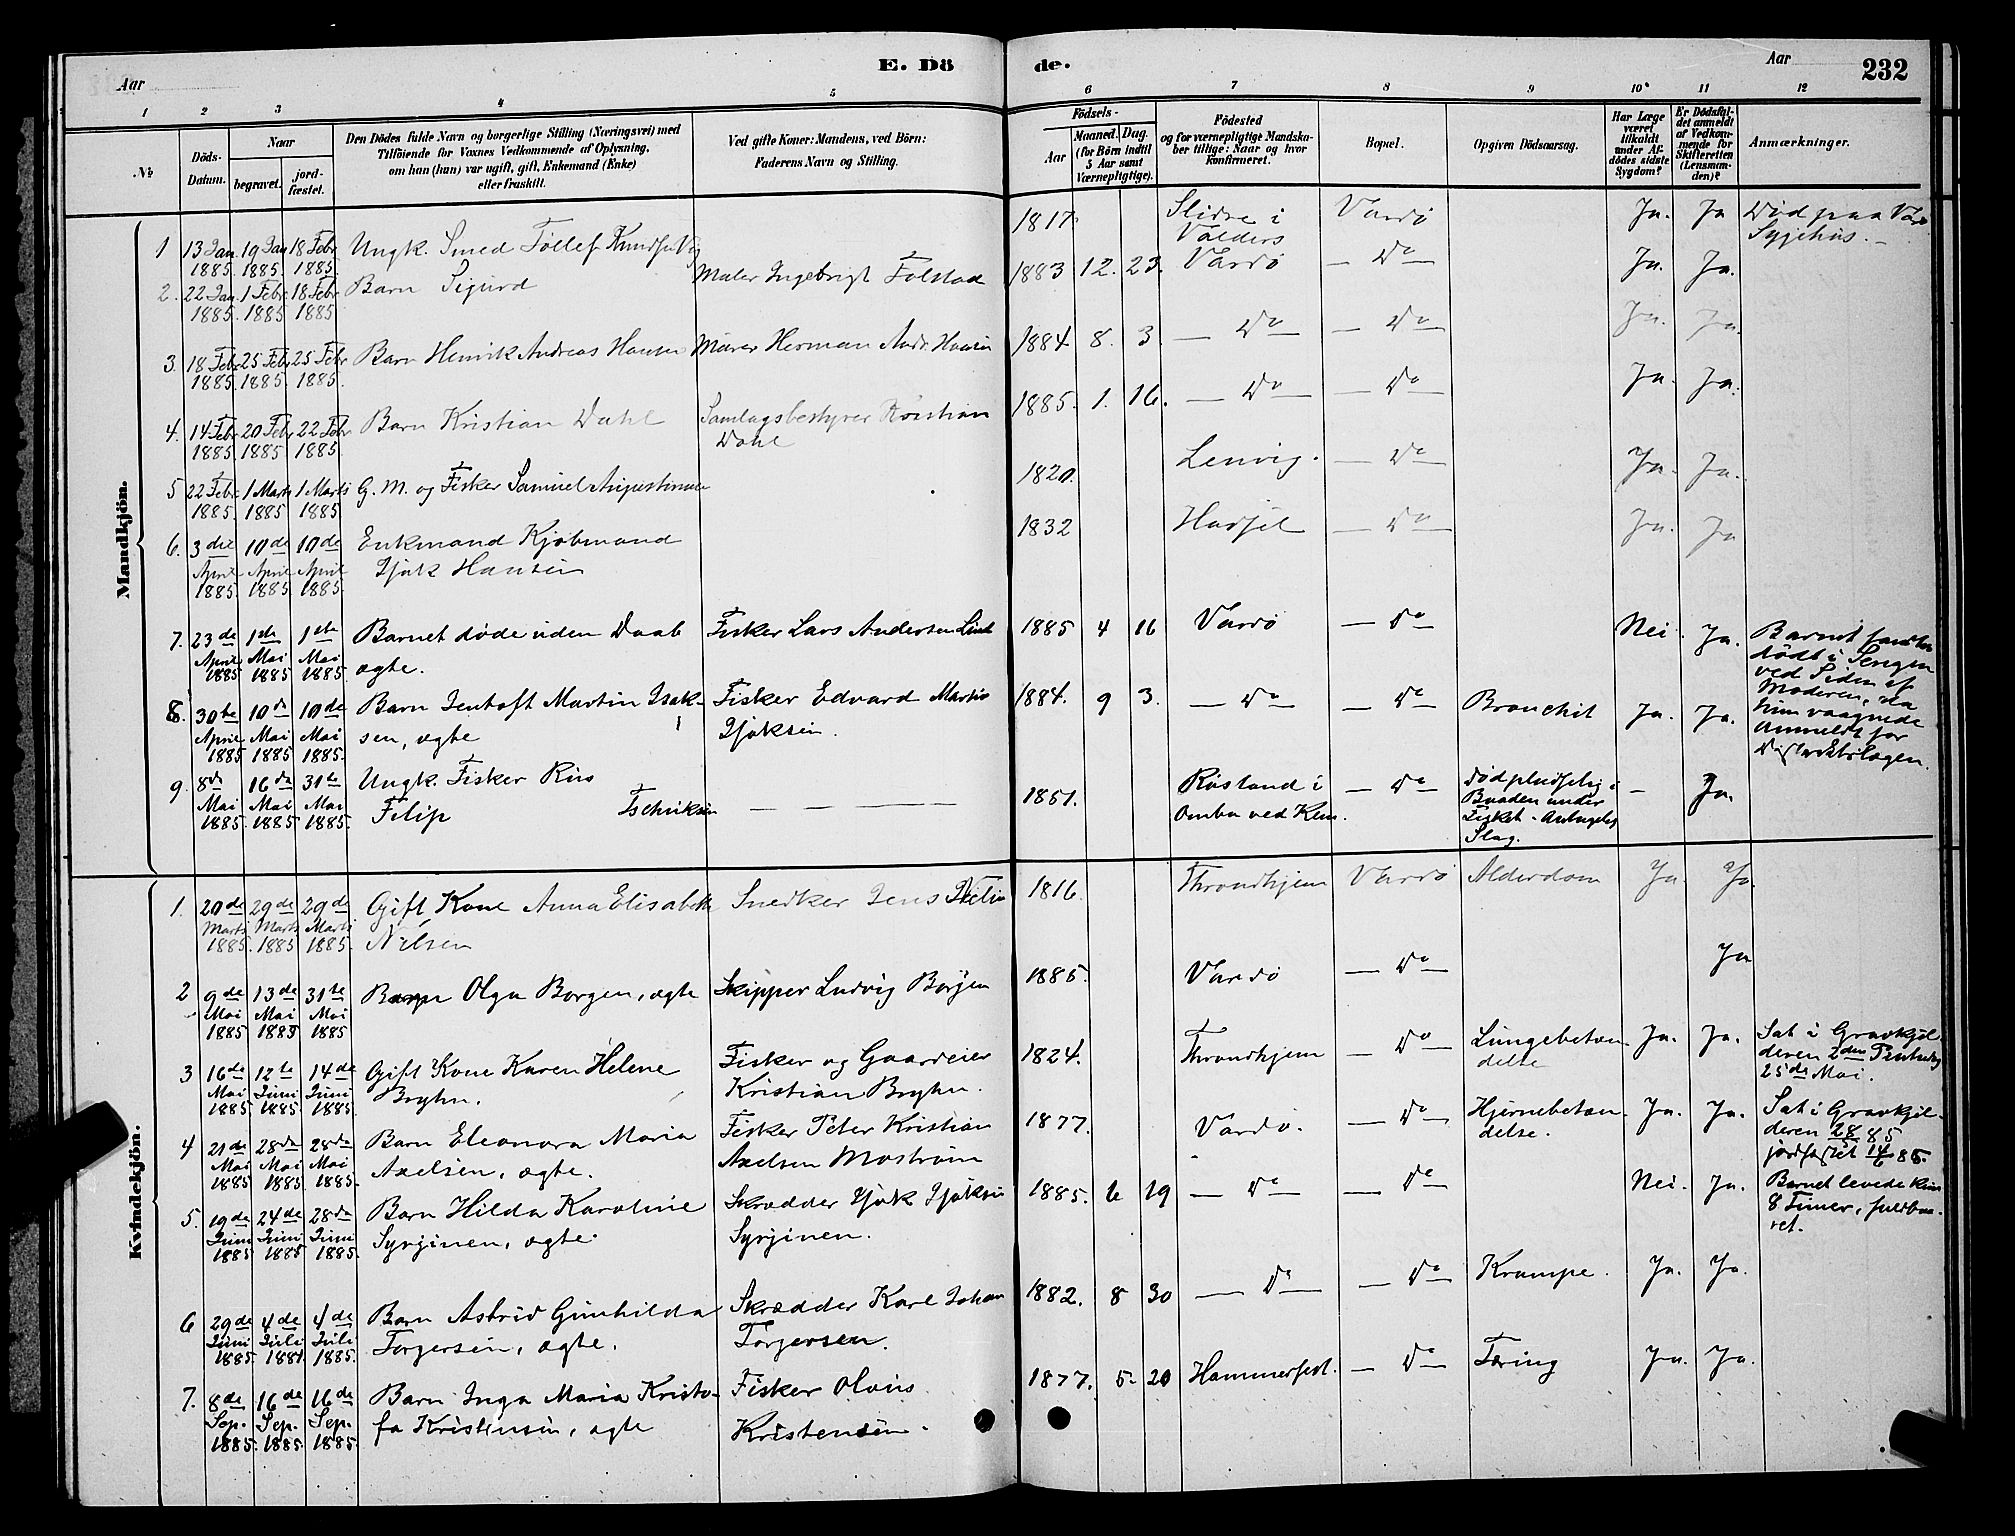 E. Döde.
Aar
Aar
232
1 2 3 4 5 6 7 8 9 10 11 12
No
Döds-Datum.
Naar
begravet.
jord-fæstet.
Den Dödes fulde Navn og borgerlige Stilling (Næringsvei) med
Tilföiende for Voxnes Vedkommende af Oplysning,
om han (hun) var ugift, gift, Enkemand (Enke)
eller fraskilt.
Ved gifte Koner: Mandens, ved Börn:
Faderens Navn og Stilling.
Födsels-
Aar
Maaned. Dag.
(for Börn indtil
5 Aar samt
Værnepligtige).
Födested
og for værnepligtige Mandska-
ber tillige: Naar og hvor
Konfirmeret.
Bopæl.
Opgiven Dödsaarsag.
Har Læge
været
tilkaldt
under Af-
dödes sidste
Sygdom?
Er Dödsfal-
det anmeldt
af Vedkom-
mende for
Skifteretten
(Lensman-
den)?
Anmærkninger.
Mandkjön.
1 13 Jan 1885. 19 Jan 1885. 18 Febr 1885. Ungk. Smed Tollef Knudsen 1817. Slidre i Valders Vardö Ja. Ja Död paa Sygehus.
2. 22 Jan 1885. 1 Febr 1885 18 Febr 1885 Barn Sigurd Maler Ingebrigt Folstad 1883 12. 23. Vardö — Do Ja. Ja.
3. 18 Febr 1885. 25 Febr 1885. 25 Febr 1885. Barn Henrik Andreas Hansen Murer Herman Andr. Hansen 1884 8. 3. — Do — — Do — Ja. Ja.
4. 14 Febr 1885. 20 Febr 1885 22 Febr 1885. Barn Kristian Dahl Samlagsbestyrer Kristian Dahl 1885. 1. 16. — Do — — Do — Ja. Ja.
5 22 Febr 1885. 1 Marts 1885 1 Marts 1885 G. M. og Fisker Samuel Augustinsen 1820. Lenvig. — Do — Ja. Ja.
6. 3die April 1885. 10de April 1885 10de April 1885 Enkmand Kjöbmand Hansen 1832 Hadsel — Do — Ja. Ja
7. 23de April 1885 1ste Mai 1885 1ste Mai 1885. Barnet döde uden Daab ægte. Fisker Lars Andersen 1885 4 16 Vardö — Do Nei. Ja. Barnet fandtes dödt i Sengen ved Siden af Moderen, da hun vaagnede Anmeldt for Distriktslægen.
8. 30te April 1885 10de Mai 1885 10de Mai 1885. Barn Jentoft Martin Isak-
sen, ægte Fisker Edvard Martin 1884. 9 3. — Do — — Do — Bronchit Ja. Ja.
9. 8de Mai 1885 16de Mai 1885 31te Mai 1885. Ungk. Fisker Rus Filip 1851. Rusland i ved Kem. — Do — död pludselig i Baaden under Fisket - Antagelig Slag. — Ja.
Kvindekjön.
1. 20de Marts 1885. 29de Marts 1885 29de Marts 1885 Gift Kone Anna Elisabeth Nilsen Snedker Jens 1816. Throndhjem Vardö Alderdom Ja. Ja.
2 9de Mai 1885 13de Mai 1885 31te Mai 1885 Barn Olga Borgen, ægte Skipper Ludvig Borgen 1885. Vardö — Do — Ja
3 16de Mai 1885 12te Juni 1885. 14de Juni 1885. Gift Kone Karen Helene Bryhn. Fisker og Gaardeier Kristian Bryhn. 1824. Throndhjem — Do — Lungebetæn-
delse Ja. Ja. Sat i Gravkjel-
deren 2den Pintsedag 25de Mai.
4 21de Mai 1885 28de Mai 1885. 28de Mai 1885. Barn Eleonora Maria Axelsen, ægte. Fisker Peter Kristian Axelsen Moström 1877. Vardö. — Do — Hjernebetæn-
delse. Ja. Ja. Sat i Gravkjel-
deren 28/5 85 jordfæstet 14/6 85.
5. 19de Juni 1885 24de Juni 1885 28de Juni 1885. Barn Hilda Karoline Syrjinen, ægte. Skrædder Syrjinen. 1885. 6 19 — Do — — Do Nei. Ja. Barnet levede kun 8 Timer, fuldbaa-
ret.
6 29de Juni 1885. 4de Juli 1881. 4de Juli 1885. Barn Astrid Gunhilda Torgersen, ægte. Skrædder Karl Johan Torgersen. 1882. 8 30 — Do — — Do — Krampe. Ja. Ja.
7. 8de Sep. 1885. 16de Sep. 1885. 16de Sep. 1885 Barn Inga Maria Kristo-
fa Kristensen, ægte Fisker Olaus Kristensen. 1877. 5. 20 Hammerfest. — Do — Tæring Ja. Ja.